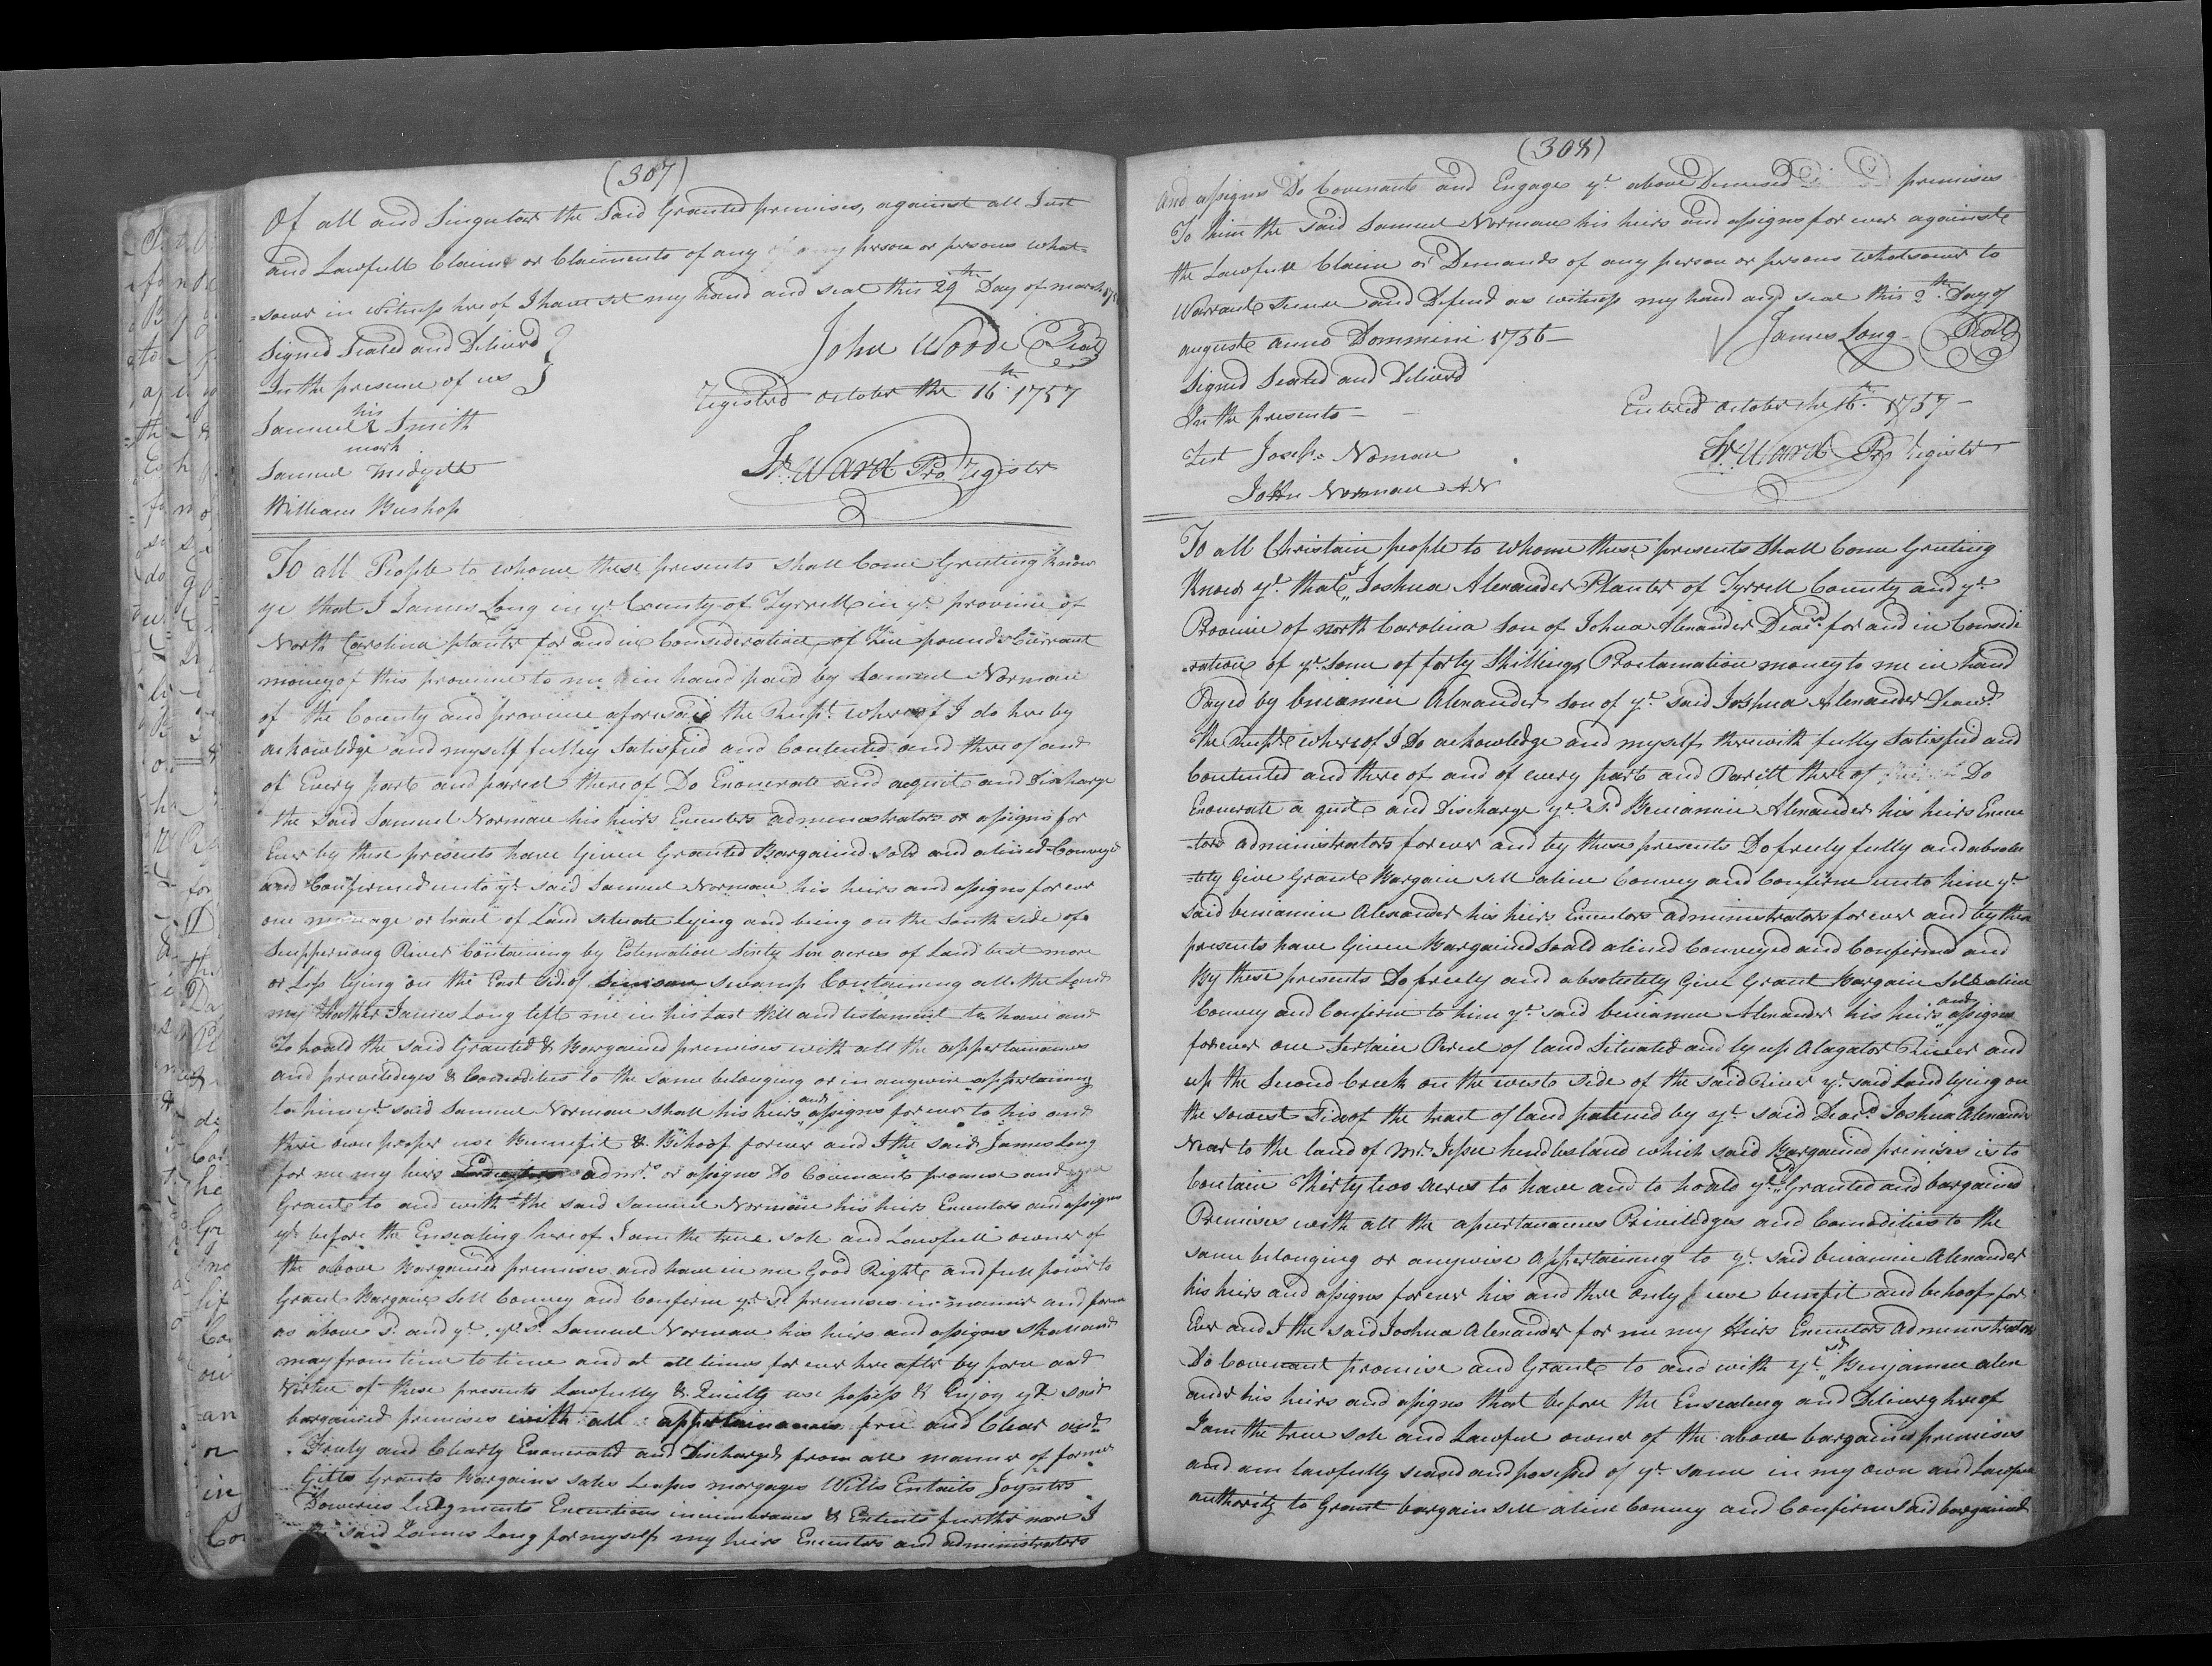 (307)
Of all and Singular the Said Granted premises, against all Just
and Lawfull Claims or Claiments of any person or persons what=
=soever in Witness hereof I have set my hand and seal this 29th Day of march
Signed Sealed and Deliverd
John Wood Seal
In the presence of us
Registerd october the 16th 1757
his
Samuel Smith
mark
Samuel Midyett
Fr. Ward Pro Register
William Bushop
To all People to whome these presents shall Come Greeting Know
ye that I James Long in ye County of Tyrrell in ye province of
North Carolina planter for and in Consideration of Five pounds Currant
money of this province to me in hand paid by Samuel Norman
of the County and province aforesaid the Recpt. whereof I do hereby
acknowledge and myself fulley Satisfied and Contented and thereof and
of Every part and parcel thereof Do Exonerate and acquit and Discharge
the Said Samuel Norman his heirs Executors administrators or assigns for
Ever by these presents have Given Granted Bargained sold and aliened Conveyd
and Confirmed unto ye said Samuel Norman his heirs and assigns for ever
one messuage or tract of Land situate Lying and being on the South side of
Scuppernong River Containing by Estemation Sixty Six acres of Land be it more
or Less lying on the East Side of swamp Containing all the Land
my Father James Long left me in his Last Will and testament to have and
To hoald the said Granted & Bargained premises with all the appertainances
and previledeges & Comodities to the Same belonging or in any wise appertaining
to him ye said Samuel Norman shall his heirs and assigns for ever to his and
there own proper use Bennefit & Behoof forever and I the said James Long
for me my heirs admrs. or assigns Do Covenant promise and
Grant to and with the said Samuel Norman his heirs Executors and assigns
yt before the Ensealing hereof I am the true sole and Lawfull owner of
the above Bargained premises and have in me Good Right and full power to
Grant Bargain Sell Convey and Confirm ye sd. premises in manner and form
as above sd. and yt ye sd. Samuel Norman his heirs and assigns shall and
may from time to time and at all times for ever here after by force and
virtue of these presents Lawfully & Quietly use possess & Enjoy ye said
bargained premises with all appertainances free and Clear and
Freely and Clearly Exonerated and Discharged from all manner of former
Gifts Grants Bargains sales Leases morgages Wills Entails Joynters
Doweries Judgments Executions incumbrances & Extents further more I
said James Long for myself my heirs Executors and administrators
(308)
And assigns Do Covenant and Engage ye above Demised premises
To him the said Samuel Norman his heirs and assigns for ever against
the Lawfull Claim or Demands of any person or persons whatsoever to
Warrant Secure and Defend as witness my hand and seal this 2th Day of
august anno Dommini 1756
James Long Seal
Signed Sealed and Deliverd
In the presents
Entered october the 16th 1757
Test Joseph Norman
Fr. Ward Pro Register
John Norman
To all Christain people to whome these presents Shall Come Greeting
Know ye that I Joshua Alexander Planter of Tyrrell County and ye
Province of North Carolina Son of Johua Alexander Deacd. for and in Conside
=ration of ye Some of forty Shillings Proclamation money to me in hand
Payed by beniamin Alexander Son of ye said Joshua Alexander Deacd.
the Recpte whereof I Do acknowledge and myself therewith fully Satisfied and
Contented and there of and of every part and Parcill there of Do
Exonerate a quit and Discharge ye sd Beniamin Alexander his heirs Execu
=tors administrators for ever and by these presents Do freely fully and absolu
=tely Give Grant Bargain sell aline Convey and Confirm unto him ye
said beniamin Alexander his heirs Executors administrators for ever and by these
presents have Given Bargained Soald aliened Conveyed and Confirmed and
By these presents Do freely and absolutely Give Grant Bargain Sell aline
Convey and Confirm to him ye said beniamin Alexander his heirs and assigns
forever one Sertain Percel of land Situated and ly up Alagator River and
up the Second Creek on the west side of the said River ye said Land lying on
the sowest side of the tract of land patened by ye said Deacd. Joshua Alexander
Near to the land of Mr. Jesse hendles land which said Bargained premises is to
Contain Thirty two acres to have and to hoald ye sd Granted and bargained
Premises with all the apurtanances Priviledges and Comodities to the
same belonging or anywise Appertaining to ye said beniamin Alexander
his heirs and assigns for ever his and there only use benifit and behoof for
Ever and I the said Joshua Alexander for me my Heirs Executors Administrators
Do Covenant promise and Grant to and with ye sd Benjamin alex
ander his heirs and assigns that before the Ensealeng and Delivery hereof
I am the true sole and Lawful owner of the above bargained premises
and am lawfully seased and possessed of ye same in my own and Lawfull
authority to Grant bargain sell aline Convey and Confirm said bargained